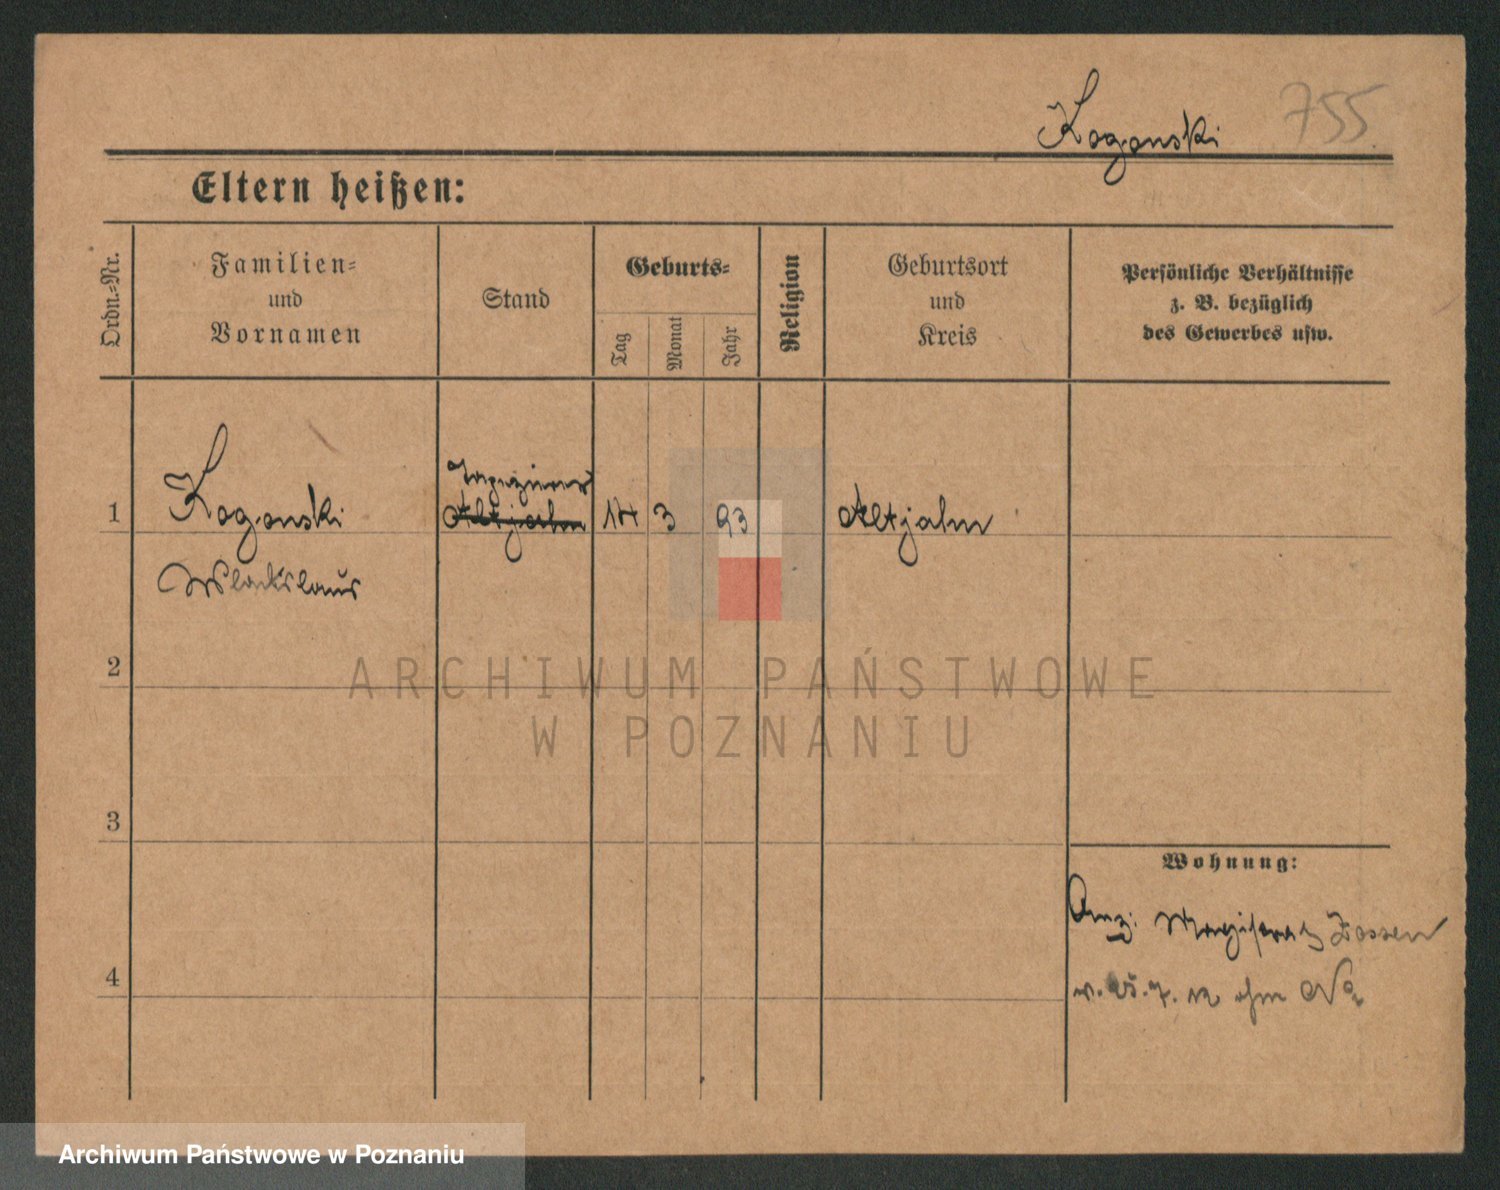 Koganski 755
Eltern heißen:
Ordn.-Nr.
Familien-
und
Vornamen
Stand
Geburts-
Tag
Monat
Jahr
Religion
Geburtsort
und
Kreis
Persönliche Verhältnisse
z. B. bezüglich
des Gewerbes usw.
1
Koganski
Wladislaus
Altjahn
14 3 93
Altjahn
2
ARCHIWUM PAŃSTWOWE
W POZNANIU
3
Wohnung:
Anz. Magistrats Zossen
4
v. 25. 7. 12 ohn No
Archiwum Państwowe w Poznaniu